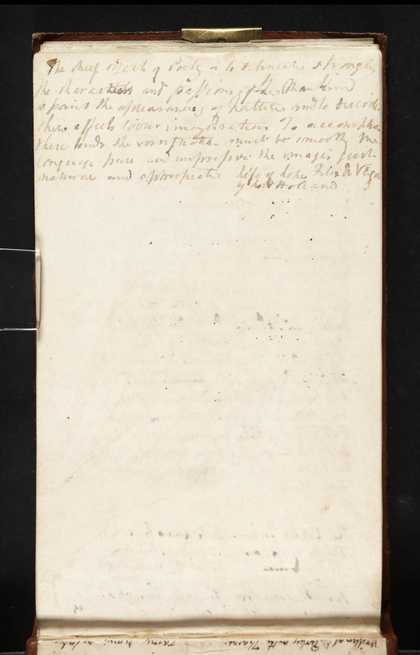 The chief object of Poetry is to delineate strongly
the characters and passions of Mankind
to paint the appearances of Nature and to describe
their effects to our imagination To accomplish
these ends the versification must be smooth the
language pure and impressive the images just
natural and appropriate Life of Lope Felix de Vega
by Lord Holland